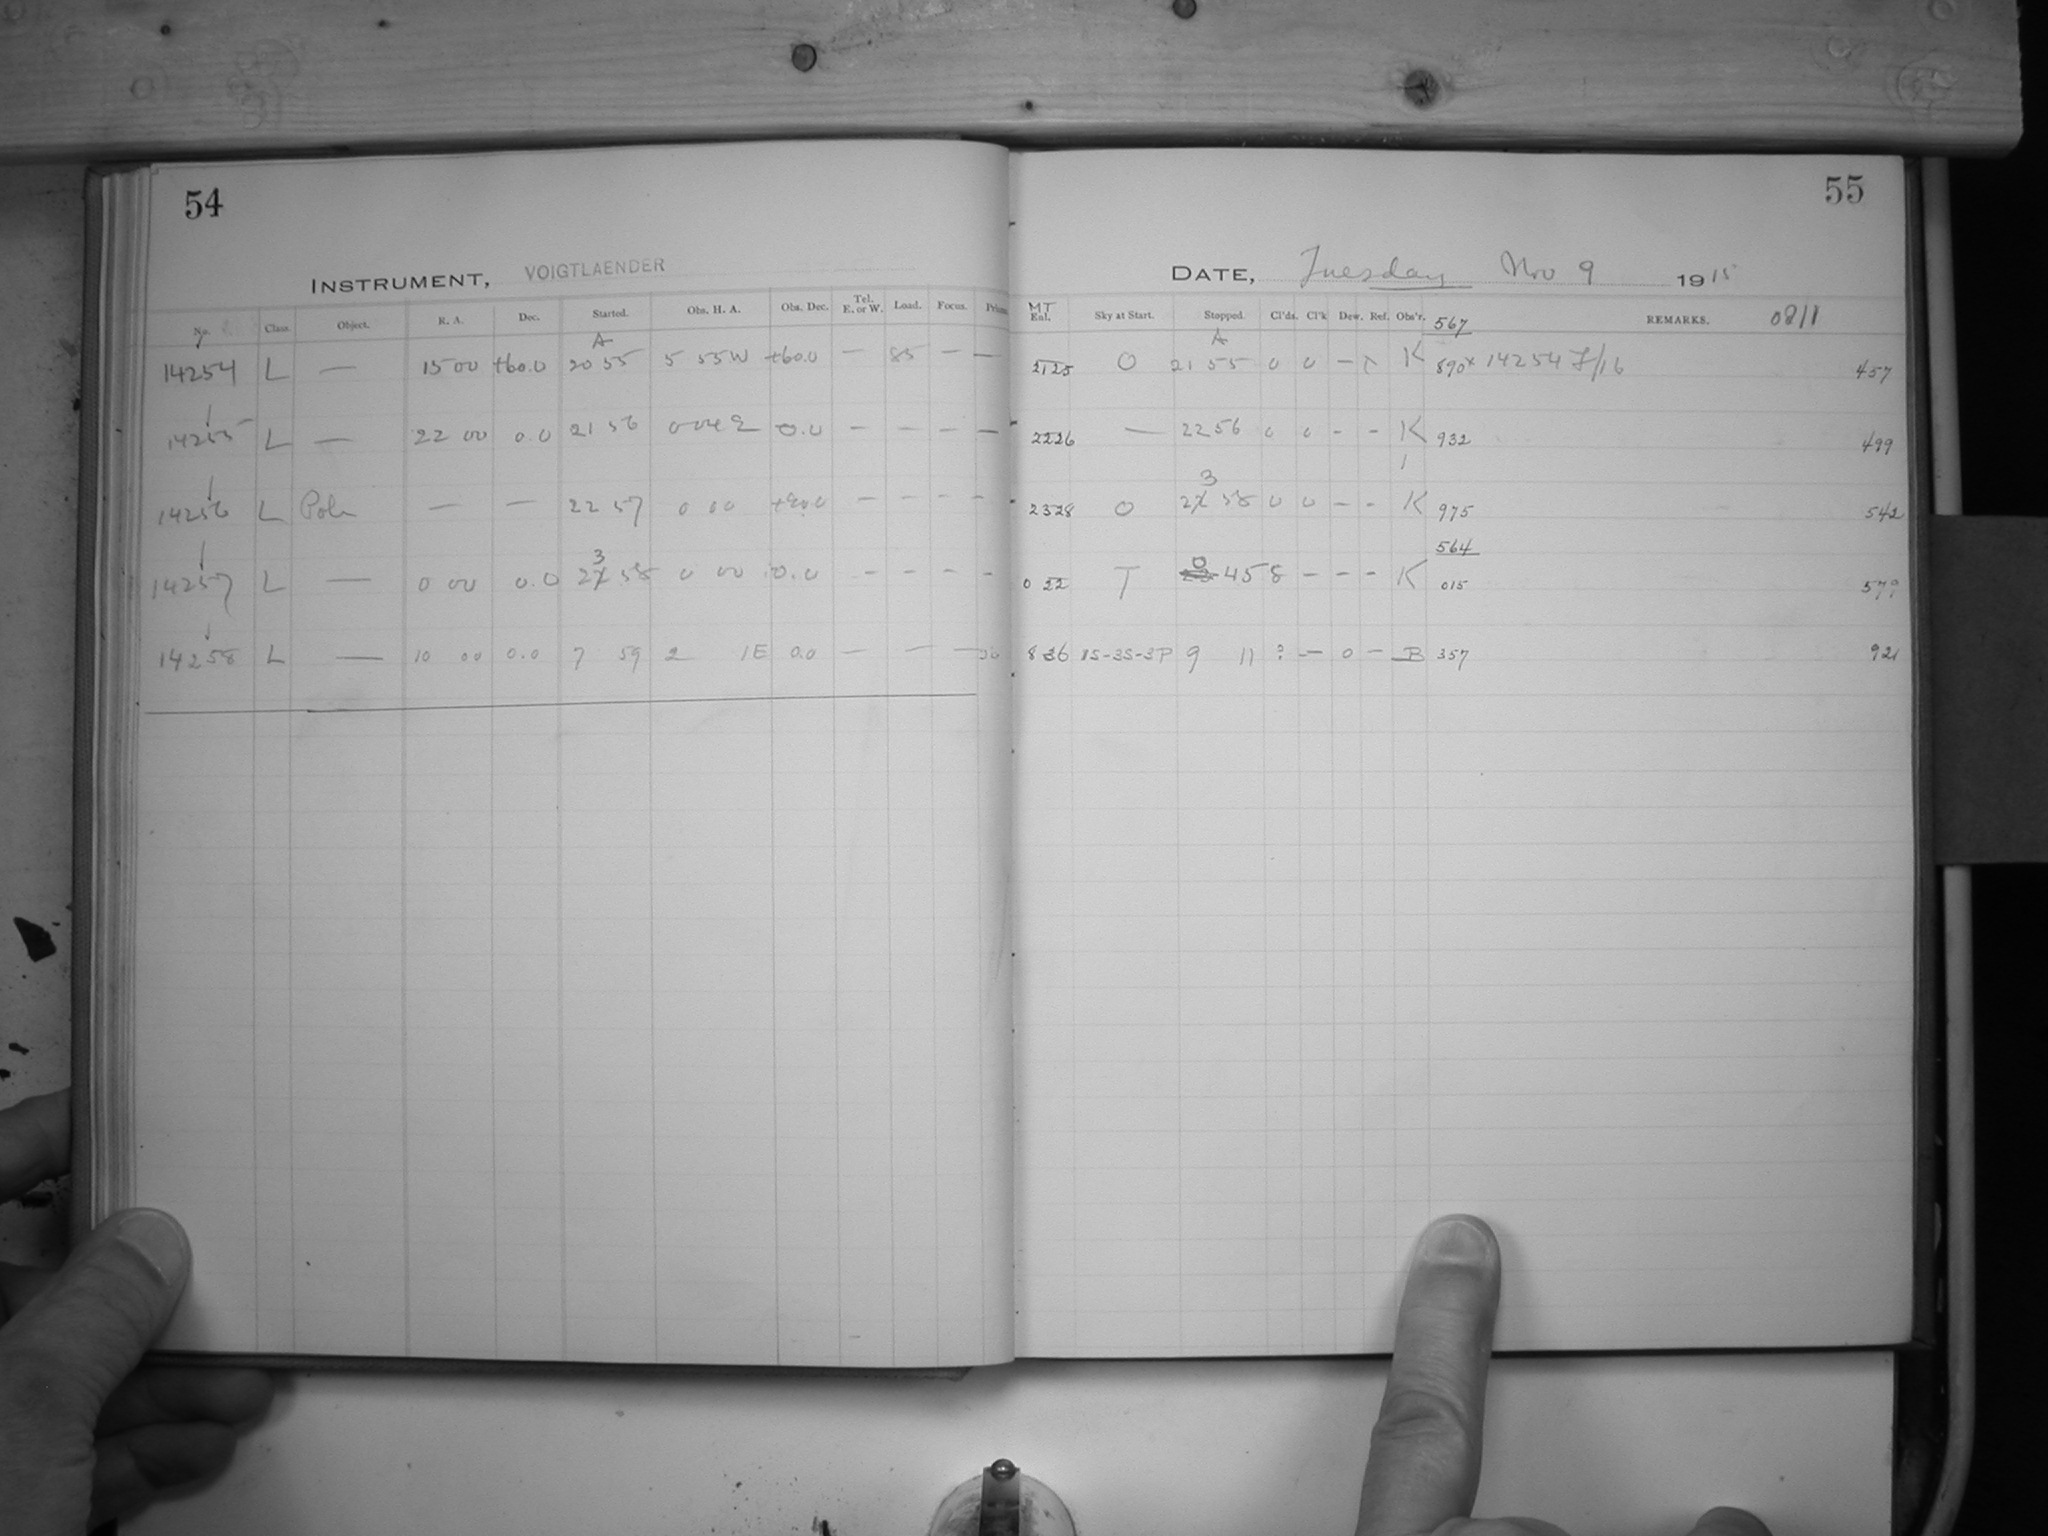 54
INSTRUMENT, VOIGTLAENDER
No. Class. Object. R. A. Dec. Started. Obs. H. A. Obs. Dec. Tel. E. or W. Load. Focus.
A
14254 L — 15 00 +60.0 20 55 5 55 W +60.0 — 85 — —
14255 L — 22 00 0.0 21 56 0 04 E 0.0 — — — —
14256 L Pole — — 22 57 0 00 +90.0 — — — -
3
14257 L — 0 00 0.0 22 58 0 00 0.0 - - - -
14258 L — 10 00 0.0 7 59 2 1E 0.0 — — —
55
DATE, Tuesday Nov 9 1915
MT
Ex1. Sky at Start. Stopped. Cl'ds. Cl'k Dew. Ref. Obs'r. 567 REMARKS. 0811
A
2125 O 21 55 0 0 — K 890 x 14254 F/16 457
2226 — 22 56 0 0 - - K 932 499
3
2328 O 22 58 0 0 - - K 975 542
564
0
0 22 T 4 58 - - - K 015
8 36 1S-3S-3P 9 11 ? — 0 — B 357 921